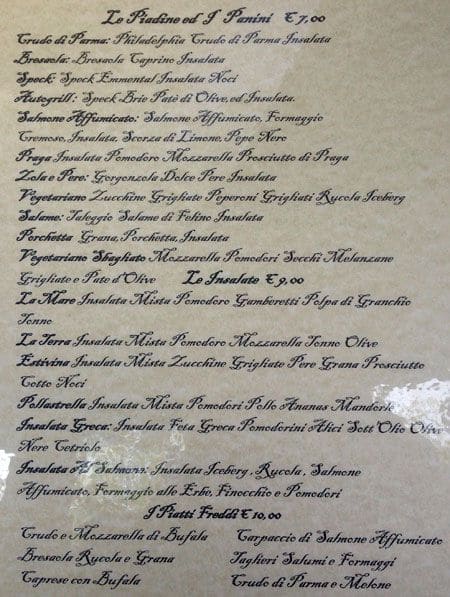 Le Piadine ed I Panini €7,00
Crudo di Parma: Philadelphia Crudo di Parma Insalata
Bresaola: Bresaola Caprino Insalata
Speck: Speck Emmental Insalata Noci
Autogrill: Speck Brie Patè di Olive, ed Insalata.
Salmone Affumicato: Salmone Affumicato, Formaggio
Cremoso, Insalata, Scorza di Limone, Pepe Nero
Praga Insalata Pomodoro Mozzarella Prosciutto di Praga
Zola e Pere: Gorgonzola Dolce Pere Insalata
Vegetariano Zucchine Grigliate Peperoni Grigliati Rucola Iceberg
Salame: Taleggio Salame di Felino Insalata
Porchetta Grana, Porchetta, Insalata
Vegetariano Sbagliato Mozzarella Pomodori Secchi Melanzane
Grigliate e Pate d'Olive Le Insalate €9,00
La Mare Insalata Mista Pomodoro Gamberetti Polpa di Granchio
Tonno
La Terra Insalata Mista Pomodoro Mozzarella Tonno Olive
Estivina Insalata Mista Zucchine Grigliate Pere Grana Prosciutto
Cotto Noci
Pollastrella Insalata Mista Pomodori Pollo Ananas Mandorle
Insalata Greca: Insalata Feta Greca Pomodorini Alici Sott'Olio Olive
Nere Cetriolo
Insalata Al Salmone: Insalata Iceberg, Rucola, Salmone
Affumicato, Formaggio alle Erbe, Finocchio e Pomodori
I Piatti Freddi €10,00
Crudo e Mozzarella di Bufala Carpaccio di Salmone Affumicato
Bresaola Rucola e Grana Taglieri Salumi e Formaggi
Caprese con Bufala Crudo di Parma e Melone